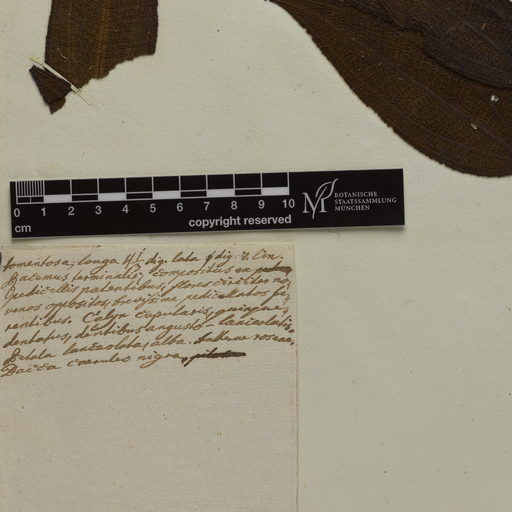 0 1 2 3 4 5 6 7 8 9 10
cm
copyright reserved
BOTANISCHE
STAATSSAMMLUNG
MÜNCHEN
tomentosa; longa 4½ dig. lata dig. 2 lin.
Racemus terminalis, compositus ex
pedicellis patentibus, flores circiter no-
venos oppositos, brevissime pedicellatos fe-
rentibus. Calyx cupularis, quinque-
dentatus, dentibus angusto-lanceolatis.
Petala lanceolata, alba. Antherae roseae.
Bacca caeruleo nigra,